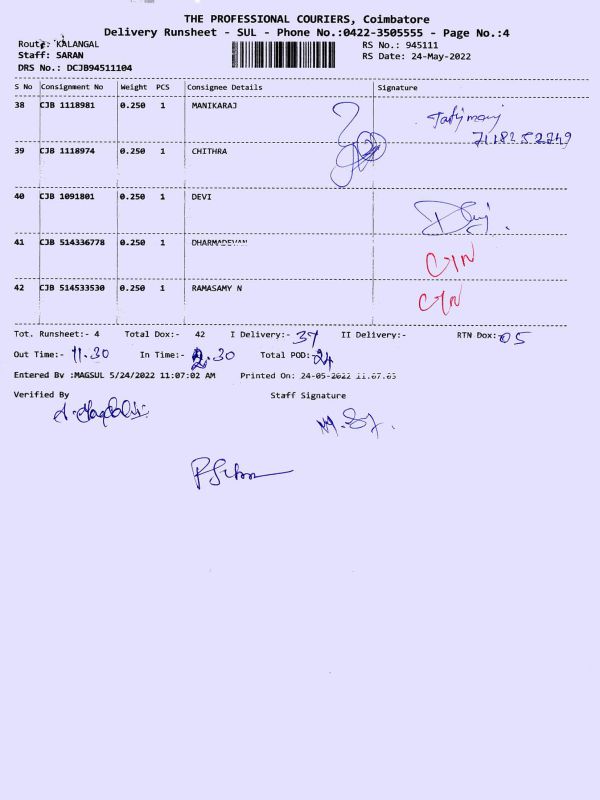 THE PROFESSIONAL COURIERS, Coimbatore
Delivery Runsheet - SUL - Phone No.:0422-3505555 - Page No.:4
Route: KALANGAL RS No.: 945111
Staff: SARAN RS Date: 24-May-2022
DRS No.: DCJB94511104
S No Consignment No Weight PCS Consignee Details Signature
38 CJB 1118981 0.250 1 MANIKARAJ
39 CJB 1118974 0.250 1 CHITHRA
40 CJB 1091801 0.250 1 DEVI
41 CJB 514336778 0.250 1 DHARMADEVAN
42 CJB 514533530 0.250 1 RAMASAMY N
Tot. Runsheet:- 4 Total Dox:- 42 I Delivery:- 37 II Delivery:- RTN Dox:- 05
Out Time:- 11.30 In Time:- 2.30 Total POD:- 24
Entered By :MAGSUL 5/24/2022 11:07:02 AM Printed On: 24-05-2022
Verified By Staff Signature